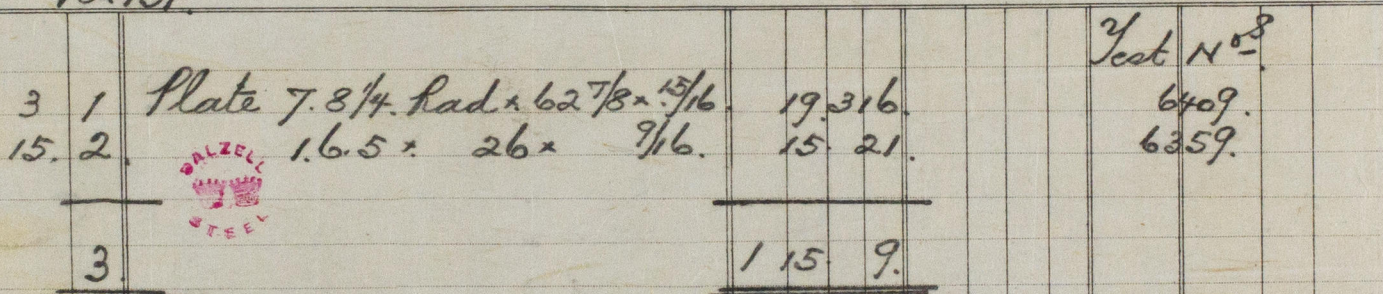 Test Nos.
3 1 Plate 7.8 1/4. Rad × 62 7/8 × 15/16. 19. 3 16. 6409.
15. 2. 1.6.5 × 26 × 9/16. 15. 21. 6359.
DALZELL
STEEL
3. 1 15. 9.